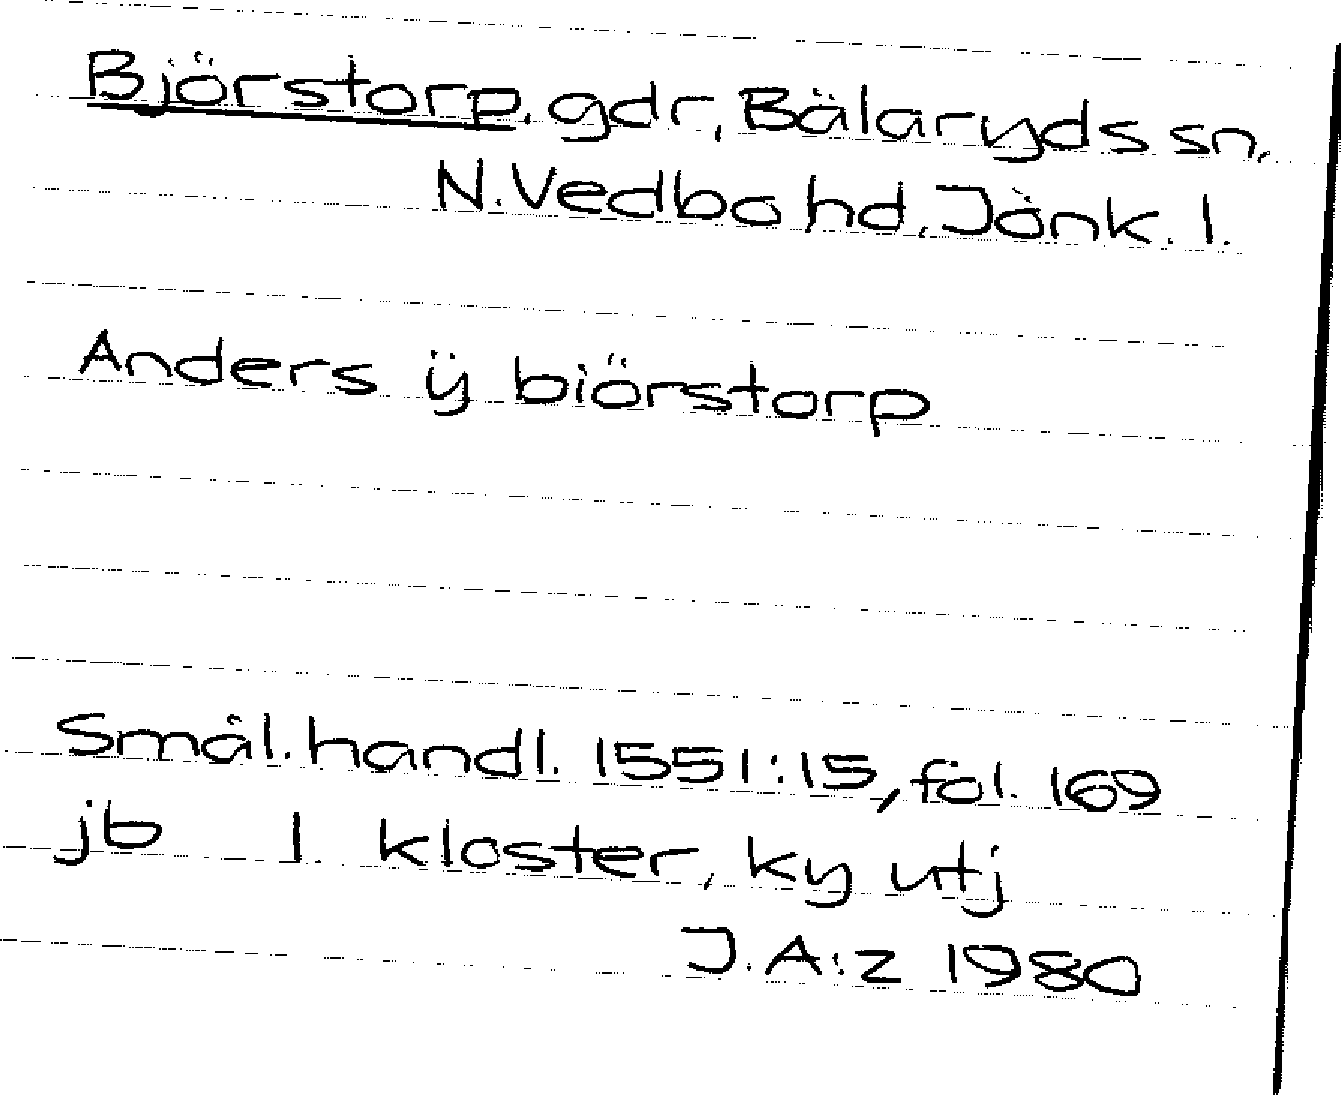 Björstorp, gdr, Bälaryds sn,
N. Vedbo hd, Jönk. l.
Anders ÿ biörstorp
Smål. handl. 1551:15, föl. 169
jb 1 kloster, ky utj
J.A:z 1980